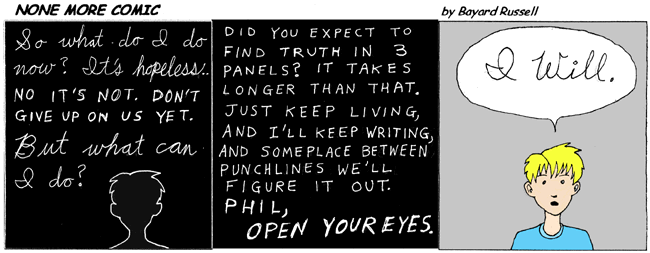 NONE MORE COMIC
by Bayard Russell
So what do I do
now? It's hopeless...
NO IT'S NOT. DON'T
GIVE UP ON US YET.
But what can
I do?
DID YOU EXPECT TO
FIND TRUTH IN 3
PANELS? IT TAKES
LONGER THAN THAT.
JUST KEEP LIVING,
AND I'LL KEEP WRITING,
AND SOMEPLACE BETWEEN
PUNCHLINES WE'LL
FIGURE IT OUT.
PHIL,
OPEN YOUR EYES.
I Will.